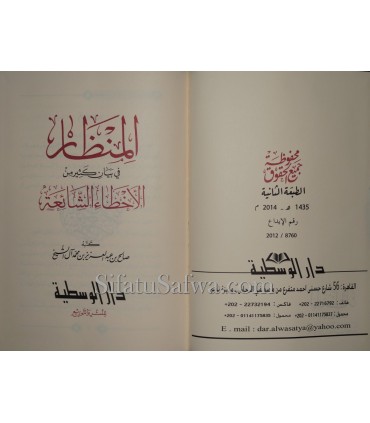 محفوظة
جميع الحقوق
الطبعة الثانية
1435 هـ - 2014 م
رقم الإيداع
2012 / 8760
دار الوسطية
القاهرة: 56 شارع حسني أحمد متفرع من
هاتف: 22719792 - 202+ فاكس: 22732194 - 202+
محمول: 01141175837 - 202+ محمول: 01141175835 - 202+
E . mail : dar.alwasatya@yahoo.com
المنظار
في بيان كثير من
الأخطاء الشائعة
كتبه
صالح بن عبد العزيز بن محمد آل الشيخ
دار الوسطية
للنشر والتوزيع
SifatuSafwa.com